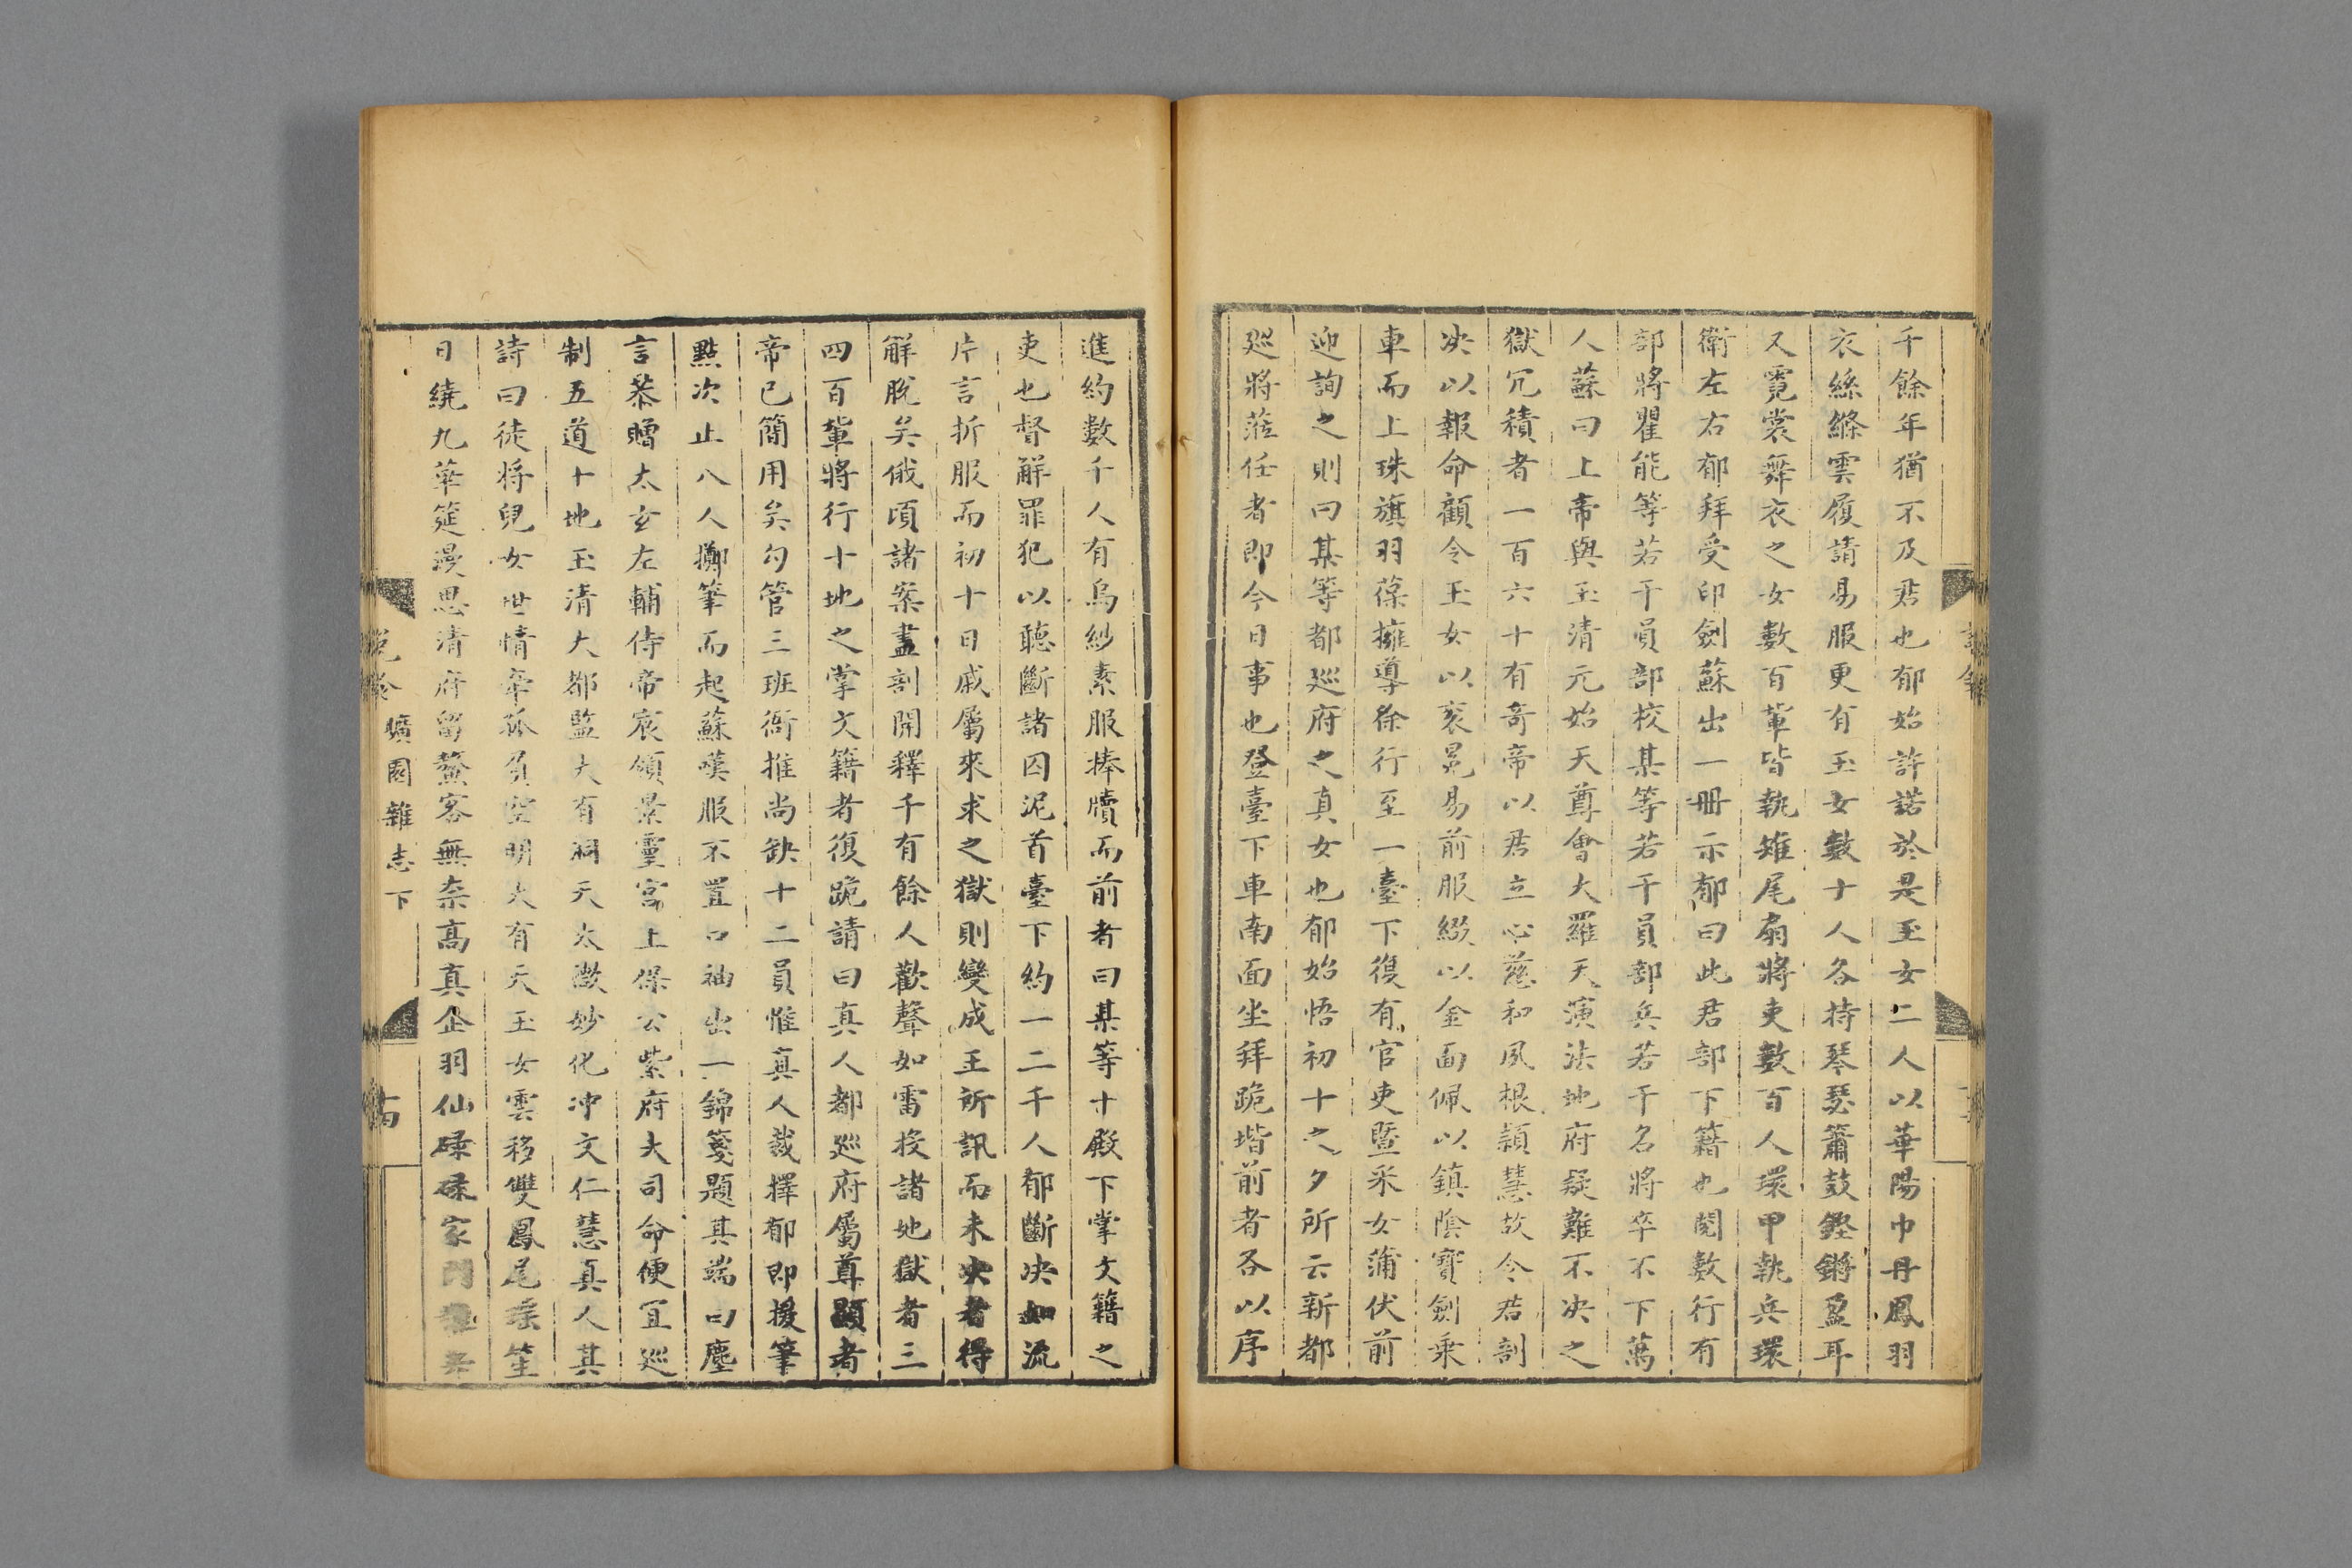 千餘年猶不及君也郁始許諾於是玉女二人以華陽巾丹鳳羽
衣絲絛雲履請易服更有玉女數十人各持琴瑟簫鼓鏗鏘盈耳
又霓裳舞衣之女數百輩皆執雉尾扇將吏數百人環甲執兵環
衛左右郁拜受印劍蘇出一冊示郁曰此君部下籍也閱數行有
部將瞿能等若干員部校某等若干員部兵若干名將卒不下萬
人蘇曰上帝與玉清元始天尊會大羅天演法地府疑難不决之
獄冗積者一百六十有奇帝以君立心慈和夙根穎慧故令君剖
决以報命顧令玉女以袞冕易前服綴以金面佩以鎮陰寶劍乘
車而上珠旗羽葆擁導徐行至一臺下復有官吏暨采女蒲伏前
迎詢之則曰某等都巡府之真女也郁始悟初十之夕所云新都
巡將蒞任者即今日事也登臺下車南面坐拜跪堦前者各以序
進約數千人有烏紗素服捧牘而前者曰某等十殿下掌文籍之
吏也督解罪犯以聽斷諸囚泥首臺下約一二千人郁斷决如流
片言折服而初十日戚屬來求之獄則變成王所訊而未决者得
解脫矣俄頃諸案盡剖開釋千有餘人歡聲如雷投諸地獄者三
四百輩將行十地之掌文籍者復跪請曰真人都巡府屬尊顯者
帝已簡用矣勾管三班衙推尚缺十二員惟真人裁擇郁即援筆
點次止八人擲筆而起蘇嘆服不置口袖出一錦箋題其端曰塵
言恭贈太玄左輔侍帝宸領景靈宮上保公紫府大司命便宜巡
制五道十地玉清大都監大有洞天太微妙化冲文仁慧真人其
詩曰徒將兒女世情牽孤負空明大有天玉女雲移雙鳳尾瑤笙
日繞九華筵漫思清府留鸞客無奈高真企羽仙碌碌家門
說鈴 曠園雜志下 十四